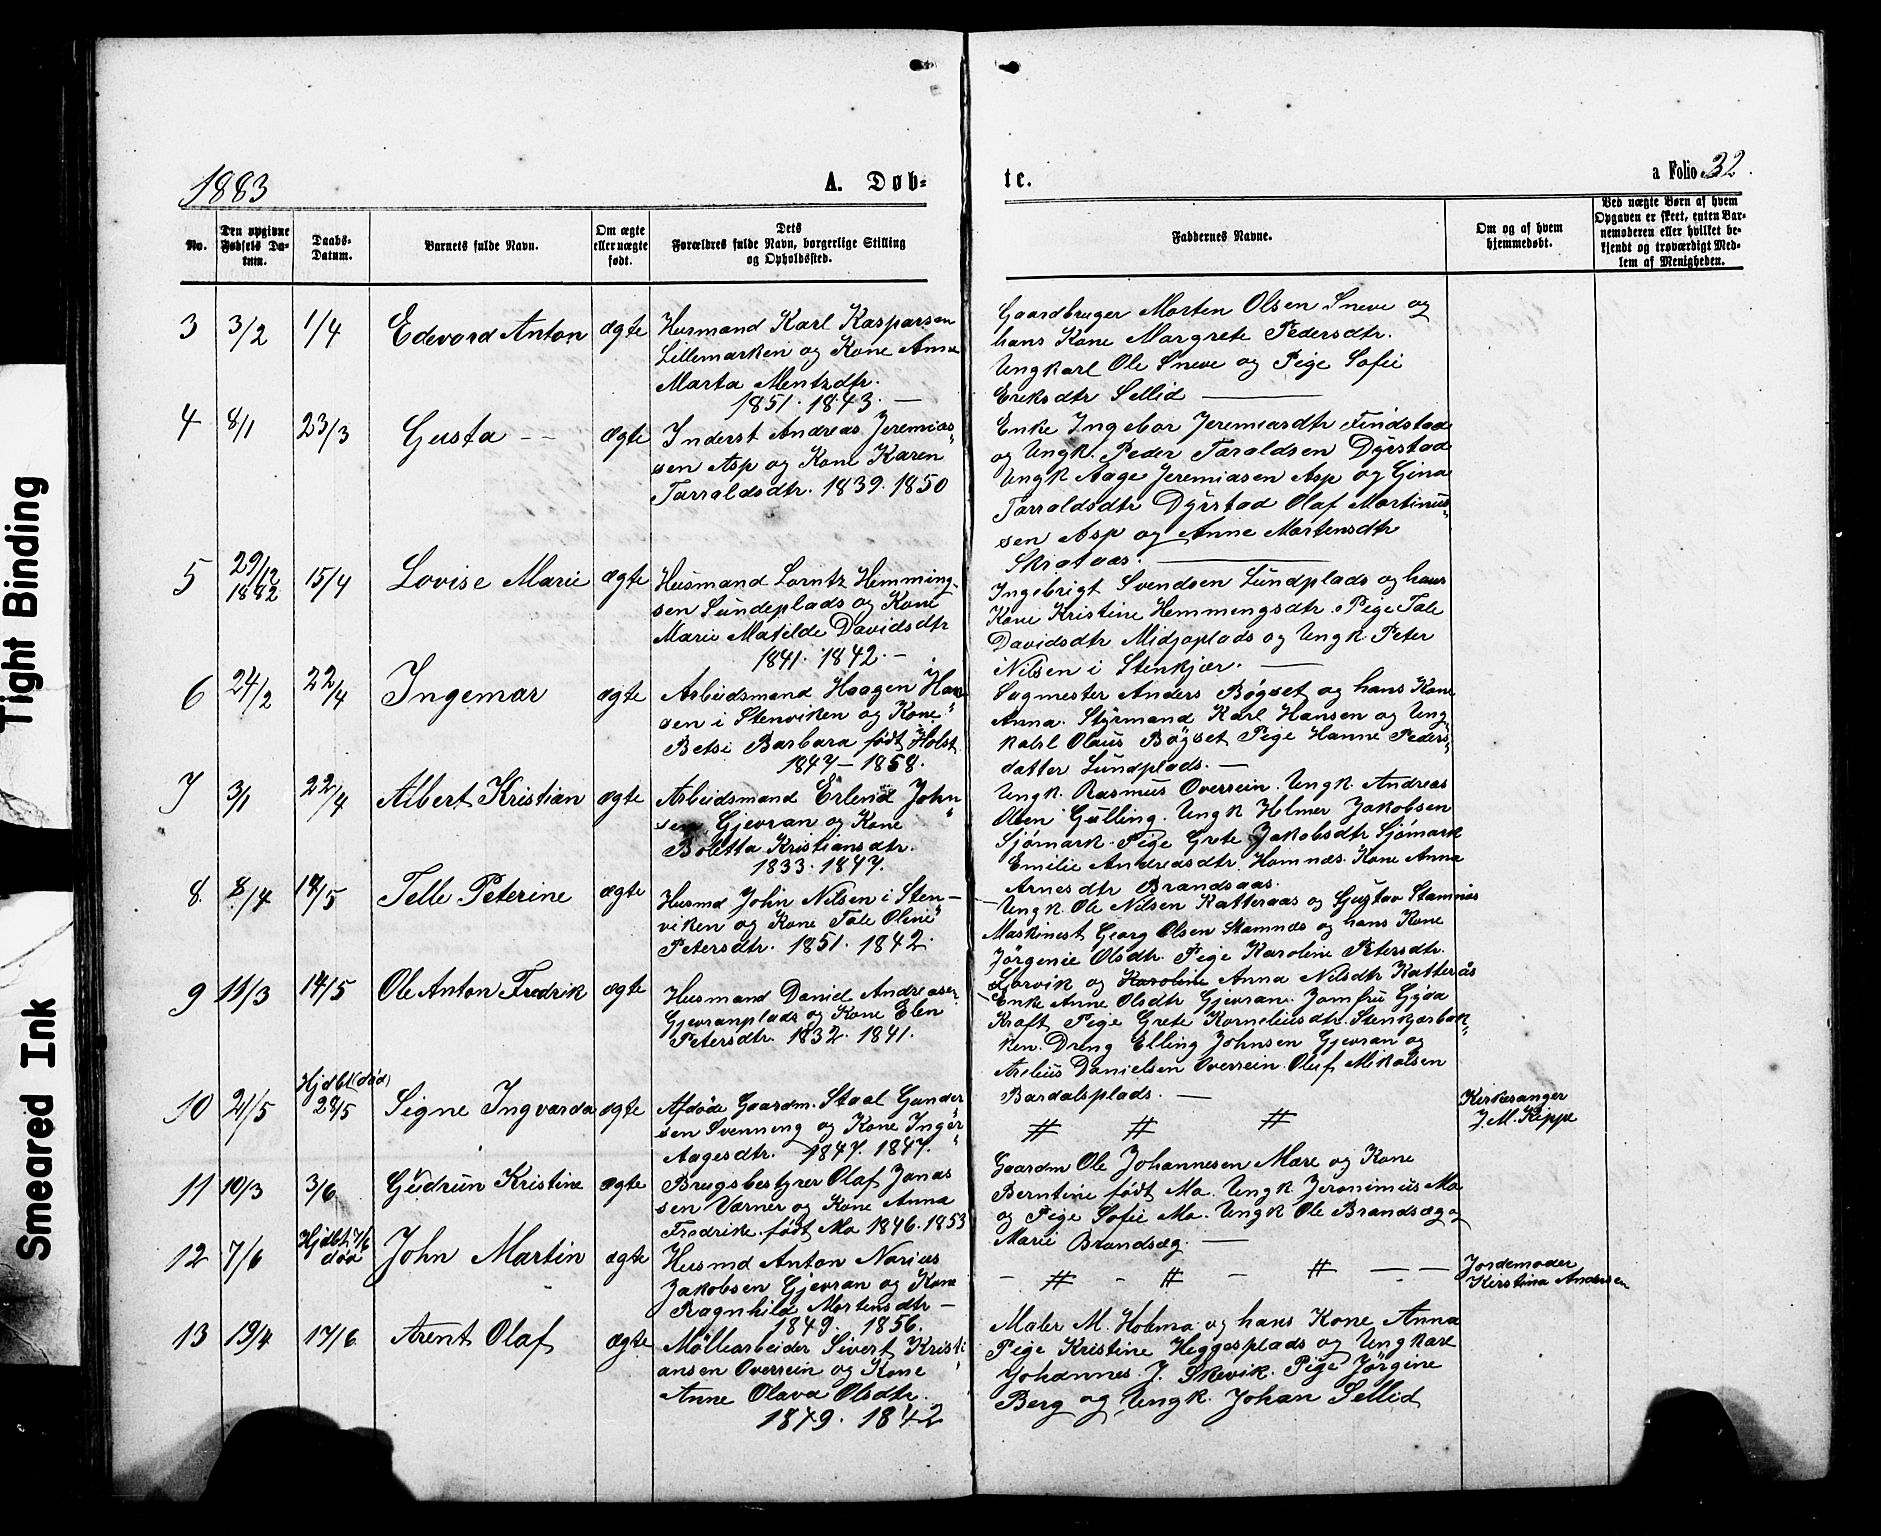 1883
A. Døb-
te.
a Folio 32.
No.
Den opgivne Fødsels Da-tum.
Daabs-Datum.
Barnets fulde Navn.
Om ægte eller uægte født.
Dets Forældres fulde Navn, borgerlige Stilling og Opholdssted.
Faddernes Navne.
Om og af hvem hjemmedøbt.
Ved uægte Børn af hvem Opgaven er skeet, enten Bar-nemoderen eller hvilket be-kjendt og troværdigt Med-lem af Menigheden.
3 3/2 1/4 Edevard Anton ægte
Husmand Karl Kasparsen
Lillemarken og Kone Anna
Marta Mentzdtr.
1851. 1843. —
Gaardbruger Morten Olsen Sneve og
hans Kone Margrete Pedersdtr.
Ungkarl Ole Sneve og Pige Sofie
Eriksdtr Sellid —
4 8/1 23/3 Gusta - - ægte
Inderst Andreas Jeremias-
sen Asp og Kone Karen
Tarraldsdtr. 1839. 1850
Enke Ingebor Jeremiasdtr Findstad
og Ungk. Peder Taraldsen Dyrstad
Ungk Aage Jeremiasen Asp og Gina
Tarraldsdtr Dyrstad Olaf Martinus-
sen Asp og Anne Martensdtr
Skrataas. —
5 29/12 1882 15/4 Lovise Marie ægte
Husmand Lorntz Hemming-
sen Sundeplads og Kone
Marie Matilde Davidsdtr
1841. 1842. —
Ingebrigt Svendsen Lundplads og hans
Kone Kristine Hemmingsdtr. Pige Tale
Davidsdtr Midjoplads og Ungk. Peter
Nilsen i Stenkjær. —
6 24/2 22/4 Ingemar ægte
Arbeidsmand Haagen Han-
sen i Stenviken og Kone
Betsi Barbara født Holst
1847 — 1858.
Sagmester Anders Bøgset og hans Kone
Anna. Styrmand Karl Hansen og Ung-
karl Olaus Bøgset Pige Hanne Peders-
datter Lundplads. —
7 3/1 22/4 Albert Kristian ægte
Arbeidsmand Erlend John-
sen Gjevran og Kone
Boletta Kristiansdtr.
1833. 1847.
Ungk. Rasmus Overrein. Ungk. Andreas
Olsen Gulling. Ungk Helmer Jakobsen
Sjømark. Pige Grete Jakobsdtr Sjømark
Emilie Andreasdtr. Hamnes. Kone Anna
Arnesdtr Brandsaas.
8. 8/4 14/5 Telle Peterine ægte
Husmd John Nilsen i Sten-
viken og Kone Tale Oline
Petersdtr. 1851. 1842.
Ungk. Ole Nilsen Katteraas og Gustav Stamnes
Maskinest Georg Olsen Stamnes og hans Kone
Jørgenie Olsdtr. Pige Karoline Petersdtr.
Lorvik og Karoline Anna Nilsdtr Katterås
9 11/3 14/5 Ole Anton Fredrik ægte
Husmand Daniel Andreasen
Gjevranplads og Kone Elen
Petersdtr. 1832. 1841.
Enke Anne Olsdtr Gjevran. Jomfru Gyda
Kraft Pige Grete Korneliusdtr. Stenkjærbak-
ken. Dreng Elling Johnsen Gjevran og
Arelius Danielsen Overrein. Oluf Mikalsen
Bardalsplads. —
10 21/5 Hjdbt (død) 28/5 Signe Ingvarda ægte
Afdøde Gaardm. Staal Gunder-
sen Svenning og Kone Inger
Aagesdtr. 1847. 1847.
# # #
Kirkesanger
J. M. Kippe
11 10/3 3/6 Gudrun Kristine ægte
Brugsbestyrer Olaf Jonas-
sen Værner og Kone Anna
Fredrike født Mo 1846. 1853
Gaardm Ole Johannesen Mære og Kone
Berntine født Mo. Ungk Jeronimus Mo
og Pige Sofie Mo. Ungk Ole Brandsæg og
Marie Brandsæg. —
12 7/6 Hjdbt. 7/6 død John Martin ægte
Husmd Anton Norius
Jakobsen Gjevran og Kone
Ragnhild Mortensdtr —
1849. 1856.
- # - # - # — —
Jordemoder
Kirstina Andersen
13 19/4 17/6 Arent Olaf ægte
Møllearbeider Sivert Kristi-
ansen Overrein og Kone
Anne Olava Olsdtr.
1849. 1842
Maler M. Holmo og hans Kone Anna
Pige Kristine Heggesplads og Ungkarl
Johannes J. Skevik. Pige Jørgine
Berg og Ungk. Johan Sellid
Tight Binding
Smeared Ink